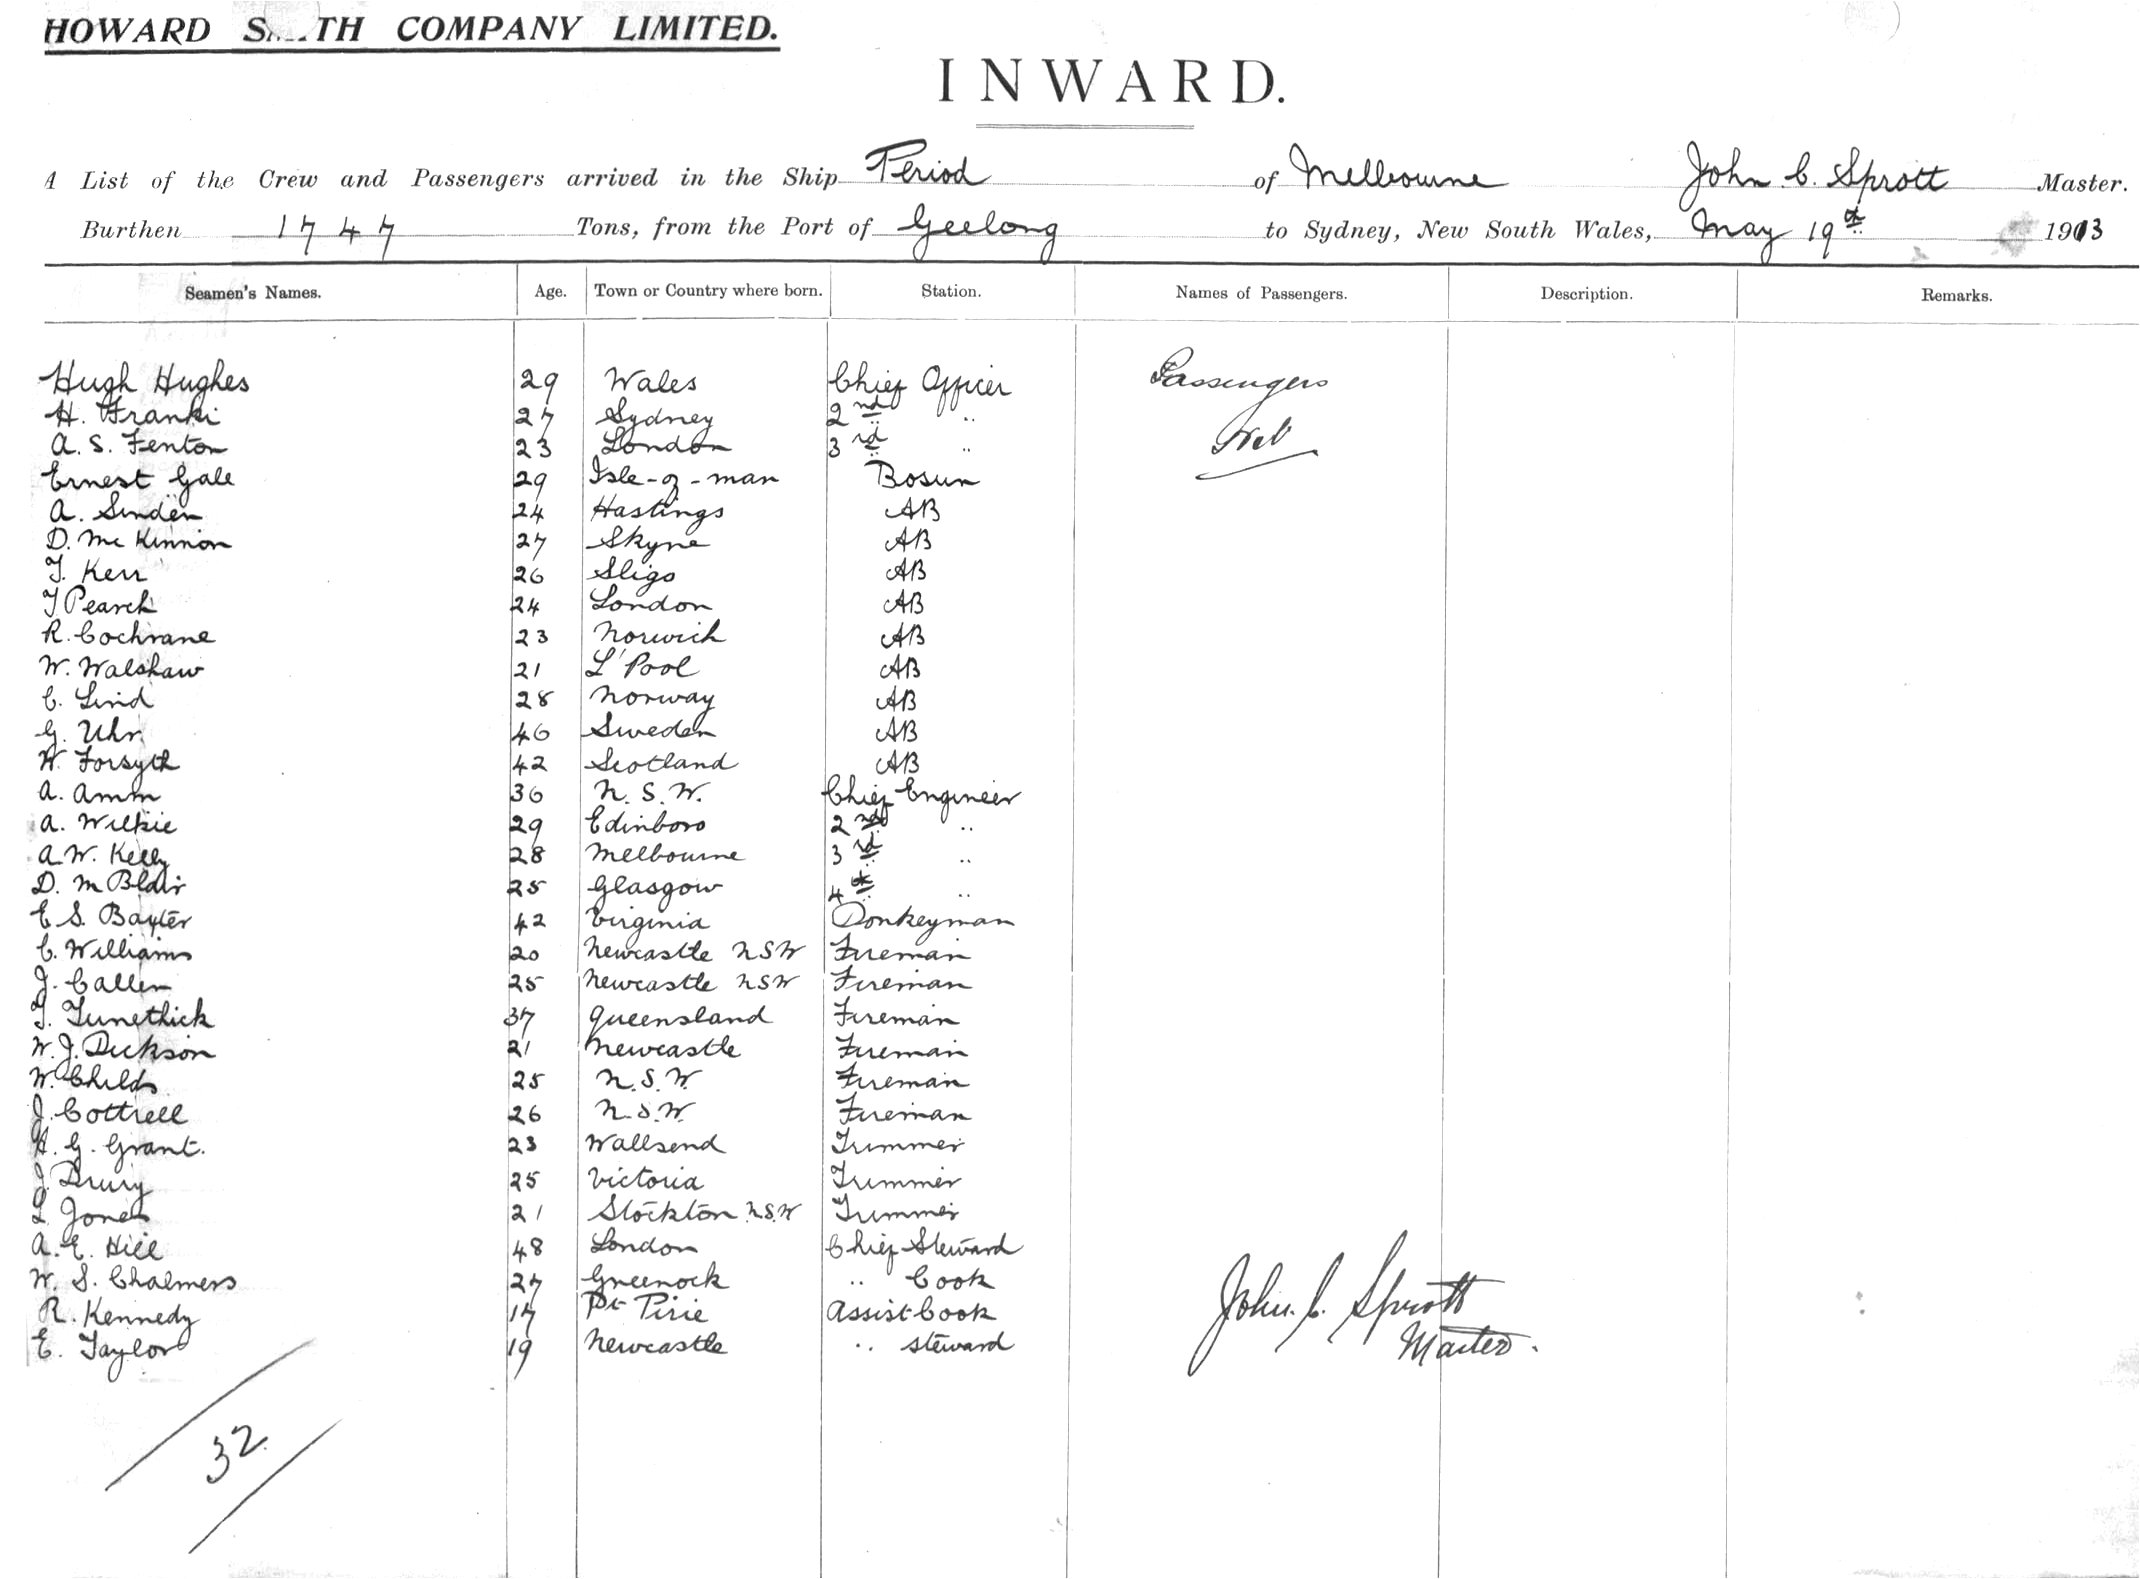 HOWARD S...TH COMPANY LIMITED.
INWARD.
A List of the Crew and Passengers arrived in the Ship Period of Melbourne John C. Sprott Master.
Burthen 1747 Tons, from the Port of Geelong to Sydney, New South Wales, May 19th 1913
Seamen's Names. Age. Town or Country where born. Station. Names of Passengers. Description. Remarks.
Hugh Hughes 29 Wales Chief Officer Passengers
H. Franki 27 Sydney 2nd "
A. S. Fenton 23 London 3rd " Nil
Ernest Gale 29 Isle-of-man Bosun
A. Sinden 24 Hastings AB
D. McKinnon 27 Skyne AB
T. Kerr 26 Sligo AB
T Pearch 24 London AB
R. Cochrane 23 Norwich AB
W. Walshaw 21 L'Pool AB
C. Lind 28 Norway AB
G. Uhr 46 Sweden AB
W. Forsyth 42 Scotland AB
A. Amm 36 N.S.W. Chief Engineer
A. Wilkie 29 Edinboro 2nd "
A.W. Kelly 28 Melbourne 3rd "
D. M Blair 25 Glasgow 4th "
E S. Baxter 42 Virginia Donkeyman
C. Williams 20 Newcastle NSW Fireman
J. Callen 25 Newcastle NSW Fireman
T. Tunethick 37 Queensland Fireman
W. J. Dickson 21 Newcastle Fireman
W. Childs 25 N.S.W. Fireman
J. Cottrell 26 N.S.W. Fireman
H. G. Grant. 23 Wallsend Trimmer
J. Drury 25 Victoria Trimmer
L Jones 21 Stockton N.S.W Trimmer
A. E. Hill 48 London Chief Steward
W. S. Chalmers 27 Greenock " Cook
R. Kennedy 17 Pt Pirie Assist Cook John. C. Sprott
E. Taylor 19 Newcastle " steward Master.
32